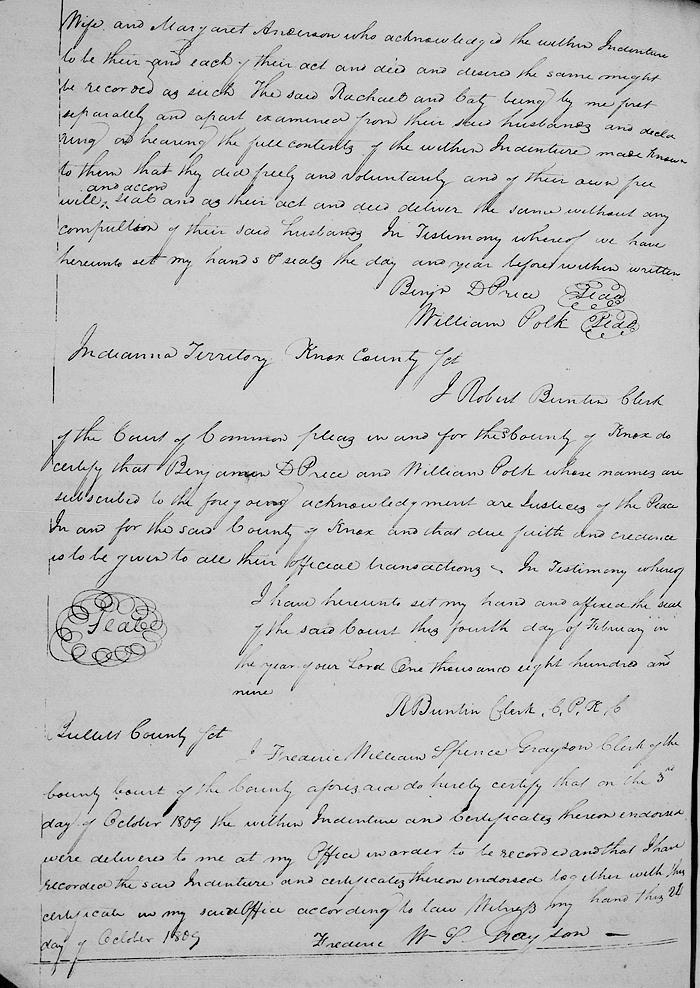 Wife and Margaret Anderson who acknowledged the within Indenture
to be their and each of their act and deed and desired the same might
be recorded as such The said Rachael and Caty being by me first
separately and apart examined from their said husbands and decla
ring on hearing the full contents of the within Indenture made known
to them that they did freely and voluntarily and of their own free
and accord
will seal and as their act and deed deliver the same without any
compultion of their said husbands In Testimony whereof we have
hereunto set my hands & seals the day and year before within written
Benjn D Price Seal
William Polk Seal
Indianna Territory Knox County Sct
I Robert Buntin Clerk
of the Court of Common pleas in and for the County of Knox do
certify that Benjamin D Price and William Polk whose names are
subscribed to the foregoing acknowledgment are Justices of the Peace
In and for the said County of Knox and that due faith and credence
is to be given to all their official transactions In Testimony whereof
Seal
I have hereunto set my hand and affixed the seal
of the said Court this fourth day of February in
the year of our Lord One thousand eight hundred and
nine
R Buntin Clerk, C, P, K, C
Bullitt County Sct
I Frederic William Spence Grayson Clerk of the
County Court of the County aforesaid do hereby certify that on the 3rd
day of October 1809 the within Indenture and Certificates thereon endorsed
were delivered to me at my Office in order to be recorded and that I have
recorded the said Indenture and certificates thereon endorsed together with this
certificate in my said Office according to law Witness my hand this
day of October 1809
Frederic W S Grayson